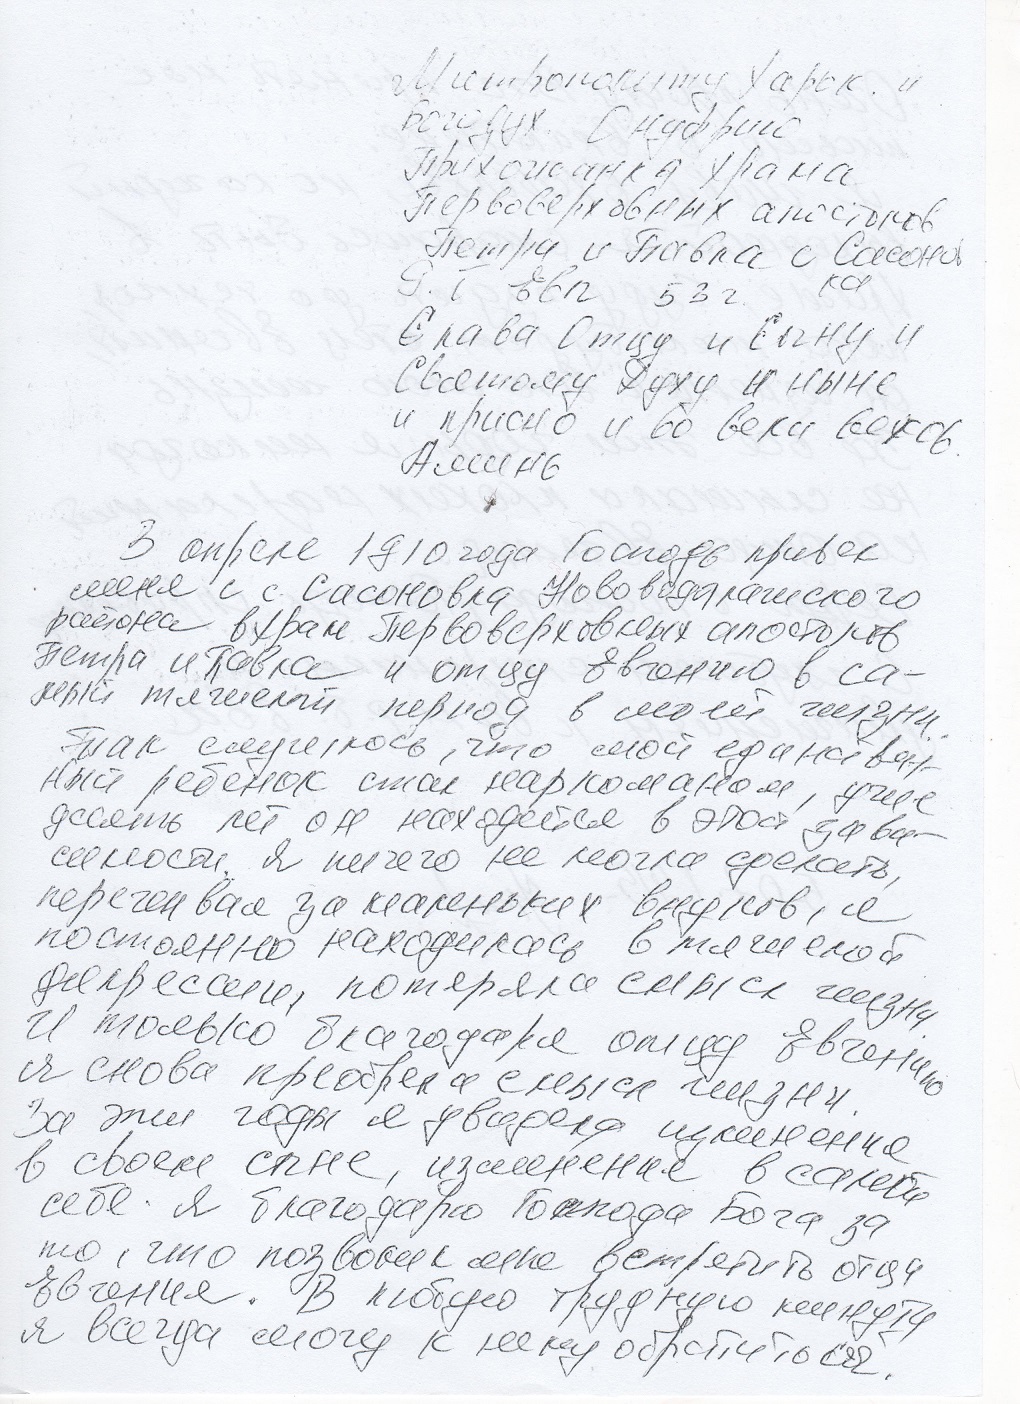 Митрополиту Харьк. и
Богодух. Онуфрию
Прихожанка храма
Первоверховных апостолов
Петра и Павла с Сасонов
ка
53 г.
Слава Отцу и Сыну и
Святому Духу и ныне
и присно и во веки веков.
Аминь
В апреле 1910 года Господь привел
меня с с. Сасоновка Нововодолажского
района в храм Первоверховных апостолов
Петра и Павла и отцу Евгению в са-
мый тяжелый период в моей жизни.
Так случилось, что мой единствен-
ный ребенок стал наркоманом, уже
десять лет он находится в этой зави-
симости. Я ничего не могла сделать,
переживая за маленьких внуков, я
постоянно находилась в тяжелой
депрессии, потеряла смысл жизни
И только благодаря отцу Евгению
я снова приобрела смысл жизни.
За эти годы я увидела изменение
в своем сыне, изменение в самой
себе. Я благодарю Господа Бога за
то, что позволил мне встретить отца
Евгения. В любую трудную минуту
я всегда могу к нему обратиться.